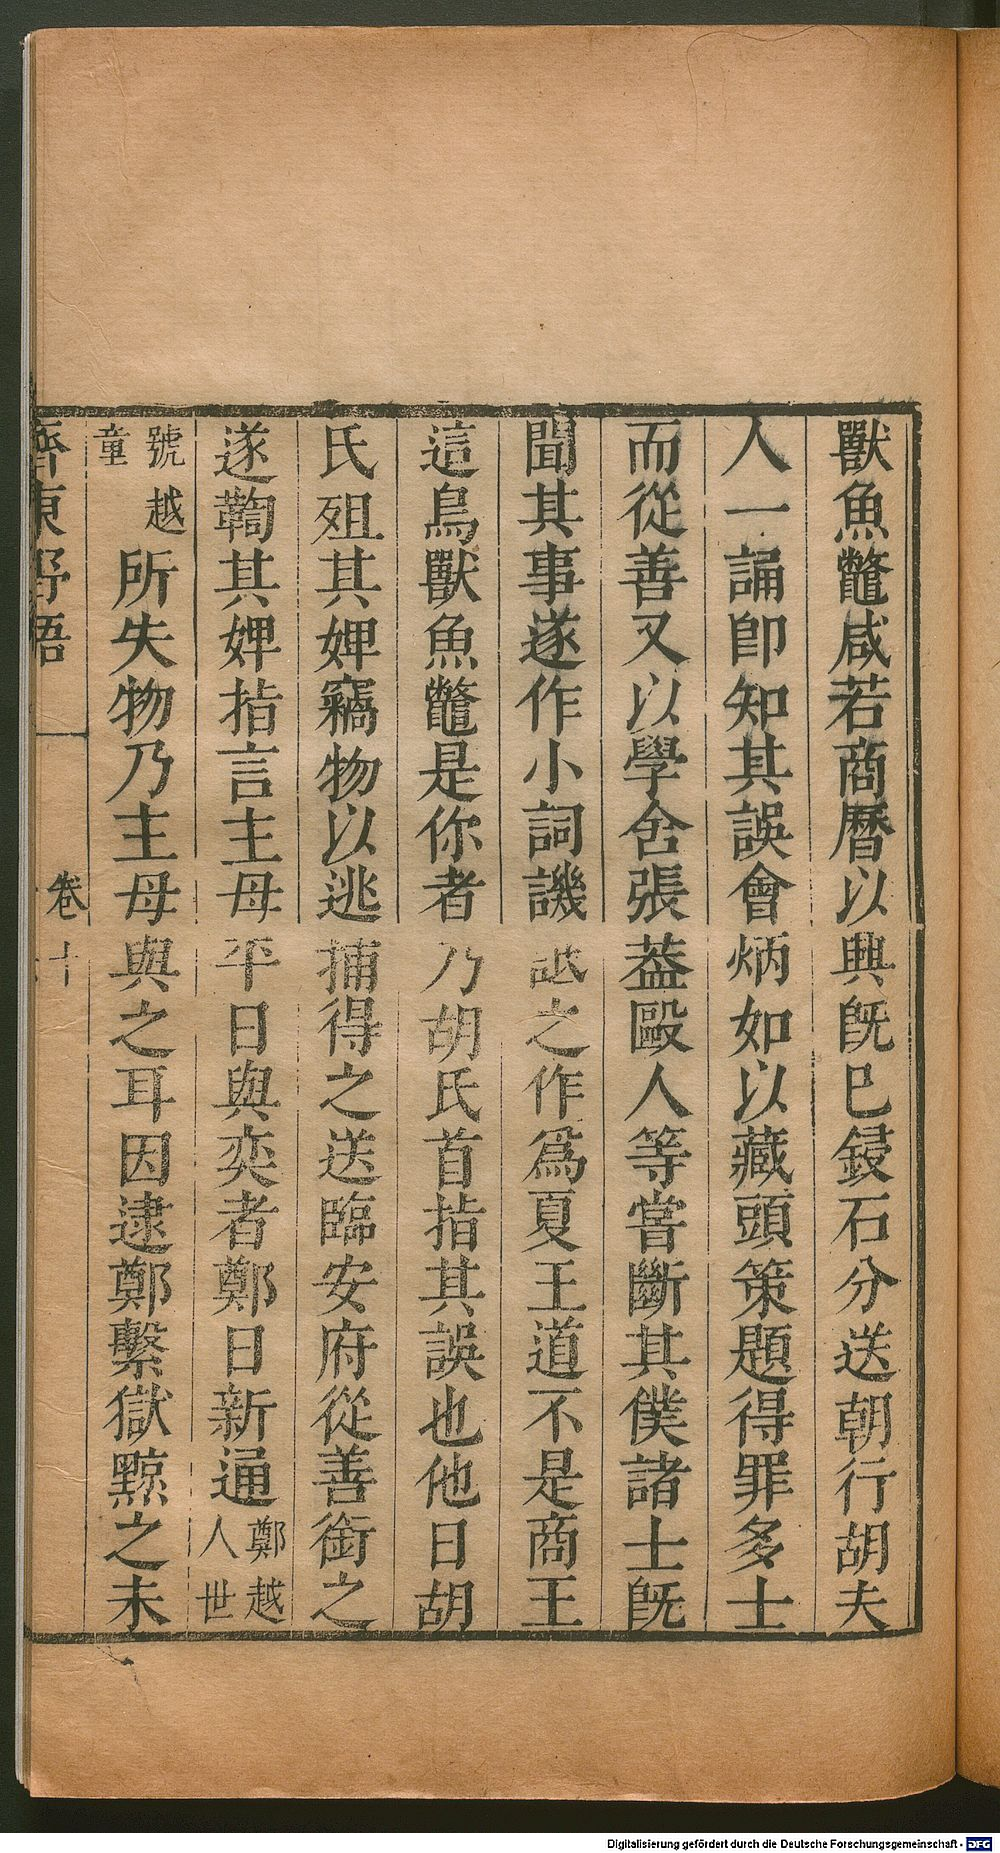 獸魚鼈咸若商曆以興旣巳鋟石分送朝行胡夫
人一誦卽知其誤會炳如以藏頭策題得罪多士
而從善又以學舍張葢毆人等嘗斷其僕諸士旣
聞其事遂作小詞譏詆之作爲夏王道不是商王
這鳥獸魚鼈是你者乃胡氏首指其誤也他日胡
氏殂其婢竊物以逃捕得之送臨安府從善銜之
遂鞫其婢指言主母平日與奕者鄭日新通鄭越人世
號越童所失物乃主母與之耳因逮鄭繫獄黥之未
齊東野語 卷十
Digitalisierung gefördert durch die Deutsche Forschungsgemeinschaft - DFG